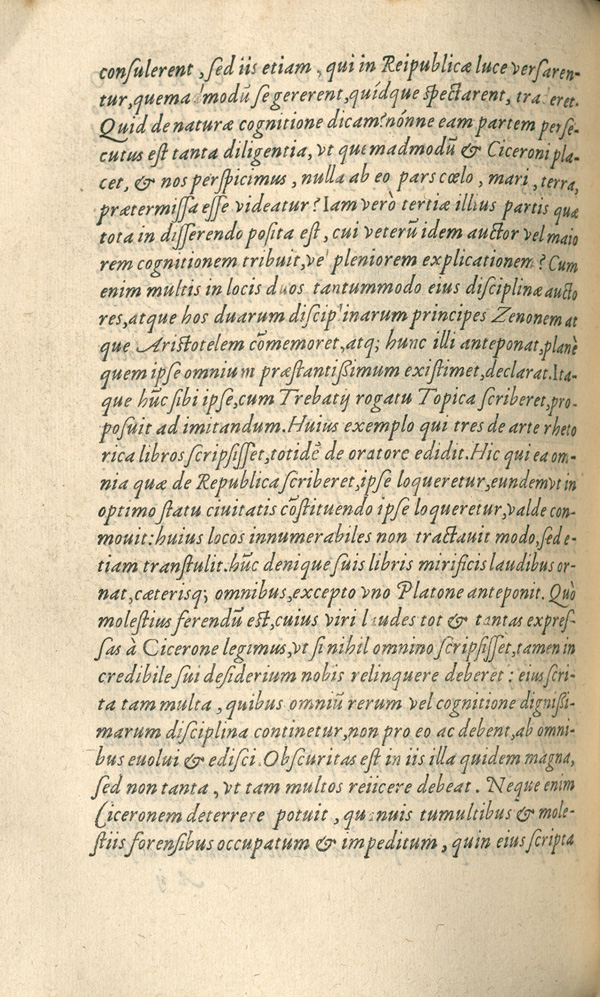 conſulerent, ſed iis etiam, qui in Reipublicæ luce verſaren-
tur, quema modū ſe gererent, quídque ſpectarent, tra eret.
Quid de naturæ cognitione dicam? nónne eam partem perſe-
cutus eſt tanta diligentia, vt quemadmodū & Ciceroni pla-
cet, & nos perſpicimus, nulla ab eo pars cœlo, mari, terra,
prætermiſſa eſſe videatur? Iam verò tertiæ illius partis quæ
tota in diſſerendo poſita eſt, cui veterū idem auctor vel maio
rem cognitionem tribuit, vel pleniorem explicationem? Cum
enim multis in locis duos tantummodo eius diſciplinæ aucto
res, atque hos duarum diſciplinarum principes Zenonem at
que Ariſtotelem cōmemoret, atq; hunc illi anteponat, planè
quem ipſe omnium præſtantißimum exiſtimet, declarat. Ita-
que hūc ſibi ipſe, cum Trebatij rogatu Topica ſcriberet, pro-
poſuit ad imitandum. Huius exemplo qui tres de arte rheto
rica libros ſcripſiſſet, totidē de oratore edidit. Hic qui ea om-
nia quæ de Republica ſcriberet, ipſe loqueretur, eundem vt in
optimo ſtatu ciuitatis cōſtituendo ipſe loqueretur, valde com-
mouit: huius locos innumerabiles non tractauit modo, ſed e-
tiam tranſtulit. hūc denique ſuis libris mirificis laudibus or-
nat, cæterisq; omnibus, excepto vno Platone anteponit. Quò
moleſtius ferendū eſt, cuius viri laudes tot & tantas expreſ-
ſas à Cicerone legimus, vt ſi nihil omnino ſcripſiſſet, tamen in
credibile ſui deſiderium nobis relinquere deberet: eius ſcri-
ta tam multa, quibus omniū rerum vel cognitione dignißi-
marum diſciplina continetur, non pro eo ac debent, ab omni-
bus euolui & ediſci. Obſcuritas eſt in iis illa quidem magna,
ſed non tanta, vt tam multos reiicere debeat. Neque enim
Ciceronem deterrere potuit, quamuis tumultibus & mole-
ſtiis forenſibus occupatum & impeditum, quin eius ſcripta